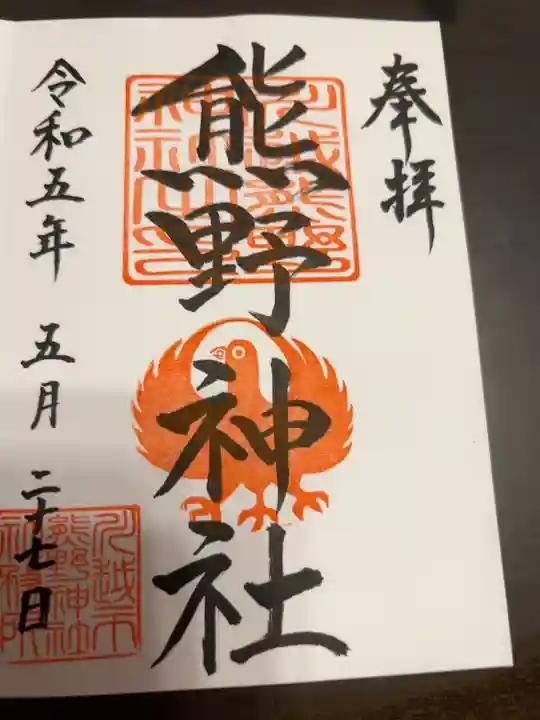 奉拝
熊野神社
令和五年 五月 二十七日
川越市
熊野神社